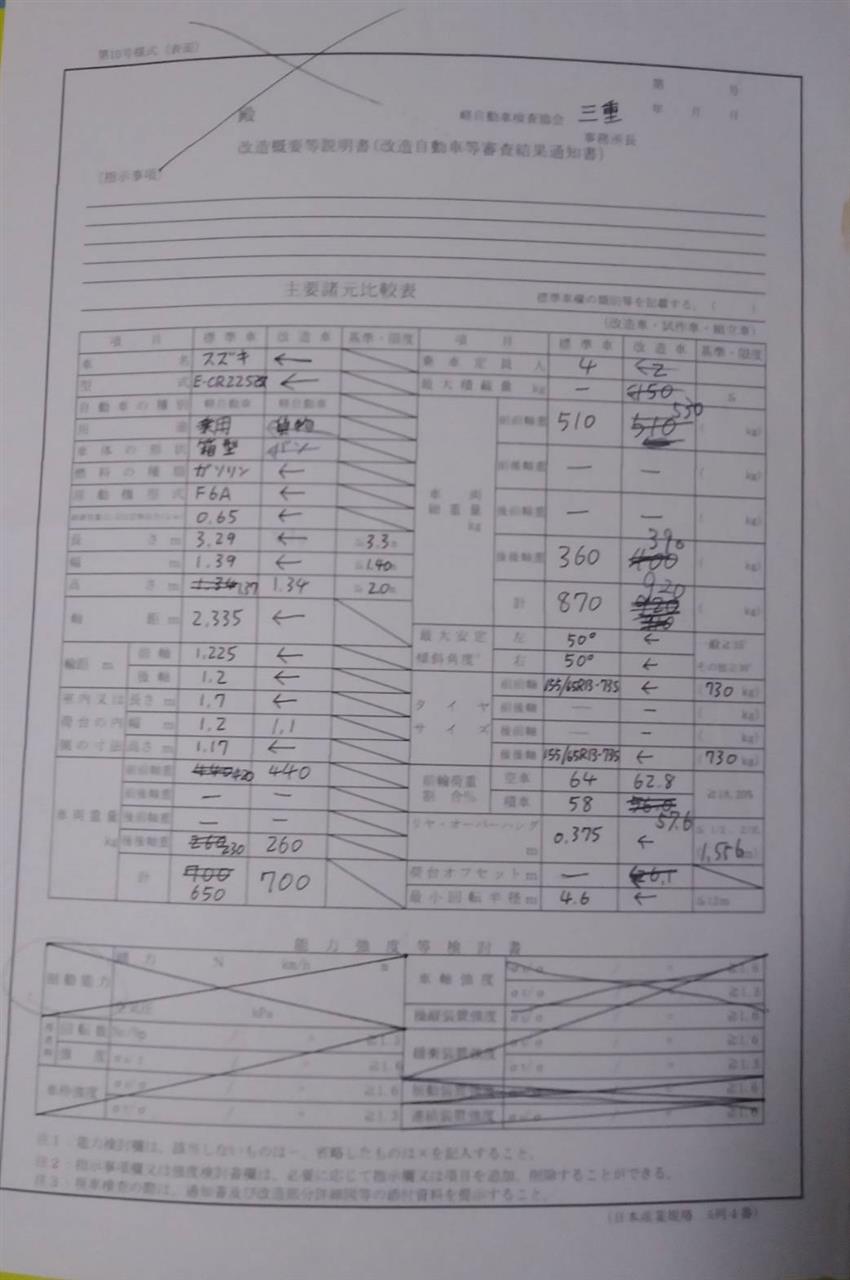 第10号様式(表面)
第 号
殿 軽自動車検査協会 三重 年 月 日
事務所長
改造概要等説明書(改造自動車等審査結果通知書)
(指示事項)
主要諸元比較表 標準車欄の類別等を記載する。( )
(改造車・試作車・組立車)
項 目 標準車 改造車 基準・限度 項 目 標準車 改造車 基準・限度
車 名 スズキ ← 乗車定員 人 4 ←2
型 式 E-CR22S改 ← 最大積載量 kg - 150 ≦
自動車の種別 軽自動車 軽自動車
用 途 乗用 貨物
車体の形状 箱型 バン
燃料の種類 ガソリン ←
原動機型式 F6A ←
0.65 ←
長 さ m 3.29 ← ≦3.3m
幅 m 1.39 ← ≦1.40m
高 さ m 1.34 1.37 1.34 ≦2.0m
軸 距 m 2.335 ←
車両総重量 kg
前前軸重 510 510 530 ( kg)
前後軸重 - - ( kg)
後前軸重 - - ( kg)
後後軸重 360 400 390 ( kg)
計 870 920 ( kg)
最大安定傾斜角度 左 50° ←
右 50° ←
輪距 m 前軸 1.225 ←
後軸 1.2 ←
室内又は荷台の内側の寸法 長さ m 1.7 ←
幅 m 1.2 1.1
高さ m 1.17 ←
タイヤサイズ 前前軸 155/65R13-73S ← (730 kg)
前後軸 - - ( kg)
後前軸 - - ( kg)
後後軸 155/65R13-73S ← (730 kg)
車両重量 kg 前前軸重 440 420 440
前後軸重 - -
後前軸重 - -
後後軸重 260 230 260
計 700 650 700
前輪荷重割合% 空車 64 62.8 ≧18,20%
積車 58 56.0 57.6
リヤ・オーバーハング m 0.375 ← ≦1/2、2/3L (1.556m)
荷台オフセット m - 26.1
最小回転半径 m 4.6 ← ≦12m
能力強度等検討書
制動能力 N km/h m
空気圧 kPa
回転数 ≧1.3
強 度 ≧1.6
車枠強度 ≧1.6
≧1.3
車軸強度 ≧1.6
≧1.3
操縦装置強度 ≧1.6
緩衝装置強度 ≧1.6
≧1.3
制動装置強度 ≧1.6
連結装置強度 ≧1.6
注1:能力検討欄は、該当しないものは-、省略したものは×を記入すること。
注2:指示事項欄又は強度検討書欄は、必要に応じて指示欄又は項目を追加、削除することができる。
注3:現車検査の際は、通知書及び改造部分詳細図等の添付資料を提示すること。
(日本産業規格 A列4番)